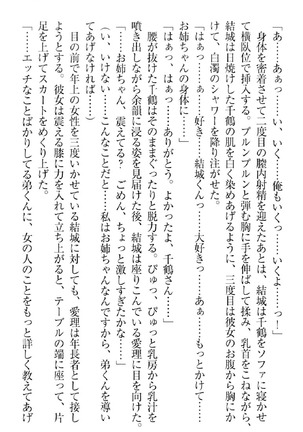 「あ……あぁっ……い、いく……俺もいくっ……！」
身体を密着させて二度目の膣内射精を迎えたあとは、結城は千鶴をソファに寝かせ
て横臥位で挿入する。プルンプルンと弾む胸に手を伸ばして揉み、乳首をこねながら、
結城は日焼けした千鶴の肌を白く染めあげるように、三度目は彼女のお腹から胸にか
けて、白濁のシャワーを降り注がせた。
「はぁっ……ぁっ……好き……結城くんっ……大好きっ……あぁ……もっとかけて……
お姉ちゃんの身体に……」
「はぁっ、はぁっ……ありがとう。よかったよ、千鶴さん……」
腰が抜けた千鶴はぐったりと脱力する。ぴゅっ、ぴゅっと乳房から乳汁を
噴き出しながら余韻に浸る姿を見届けた後、結城は座りこんでいる愛理に目を向けた。
「お姉ちゃん、震えてる？ ごめん、ちょっと激しすぎたかな……」
（い、いけない……こんなことだと……私はお姉ちゃんなんですから、弟くんを導い
てあげなければ……）
目の前で年上の女性を三度いかせている結城に対しても、愛理は年長者として接し
ようとする。彼女は震える膝に力を入れて立ち上がると、テーブルの端に座って、片
足を上げてスカートをめくり上げた。
「……エッチなことばかりしてる弟くんに、女の人のことをもっと詳しく教えてあげ